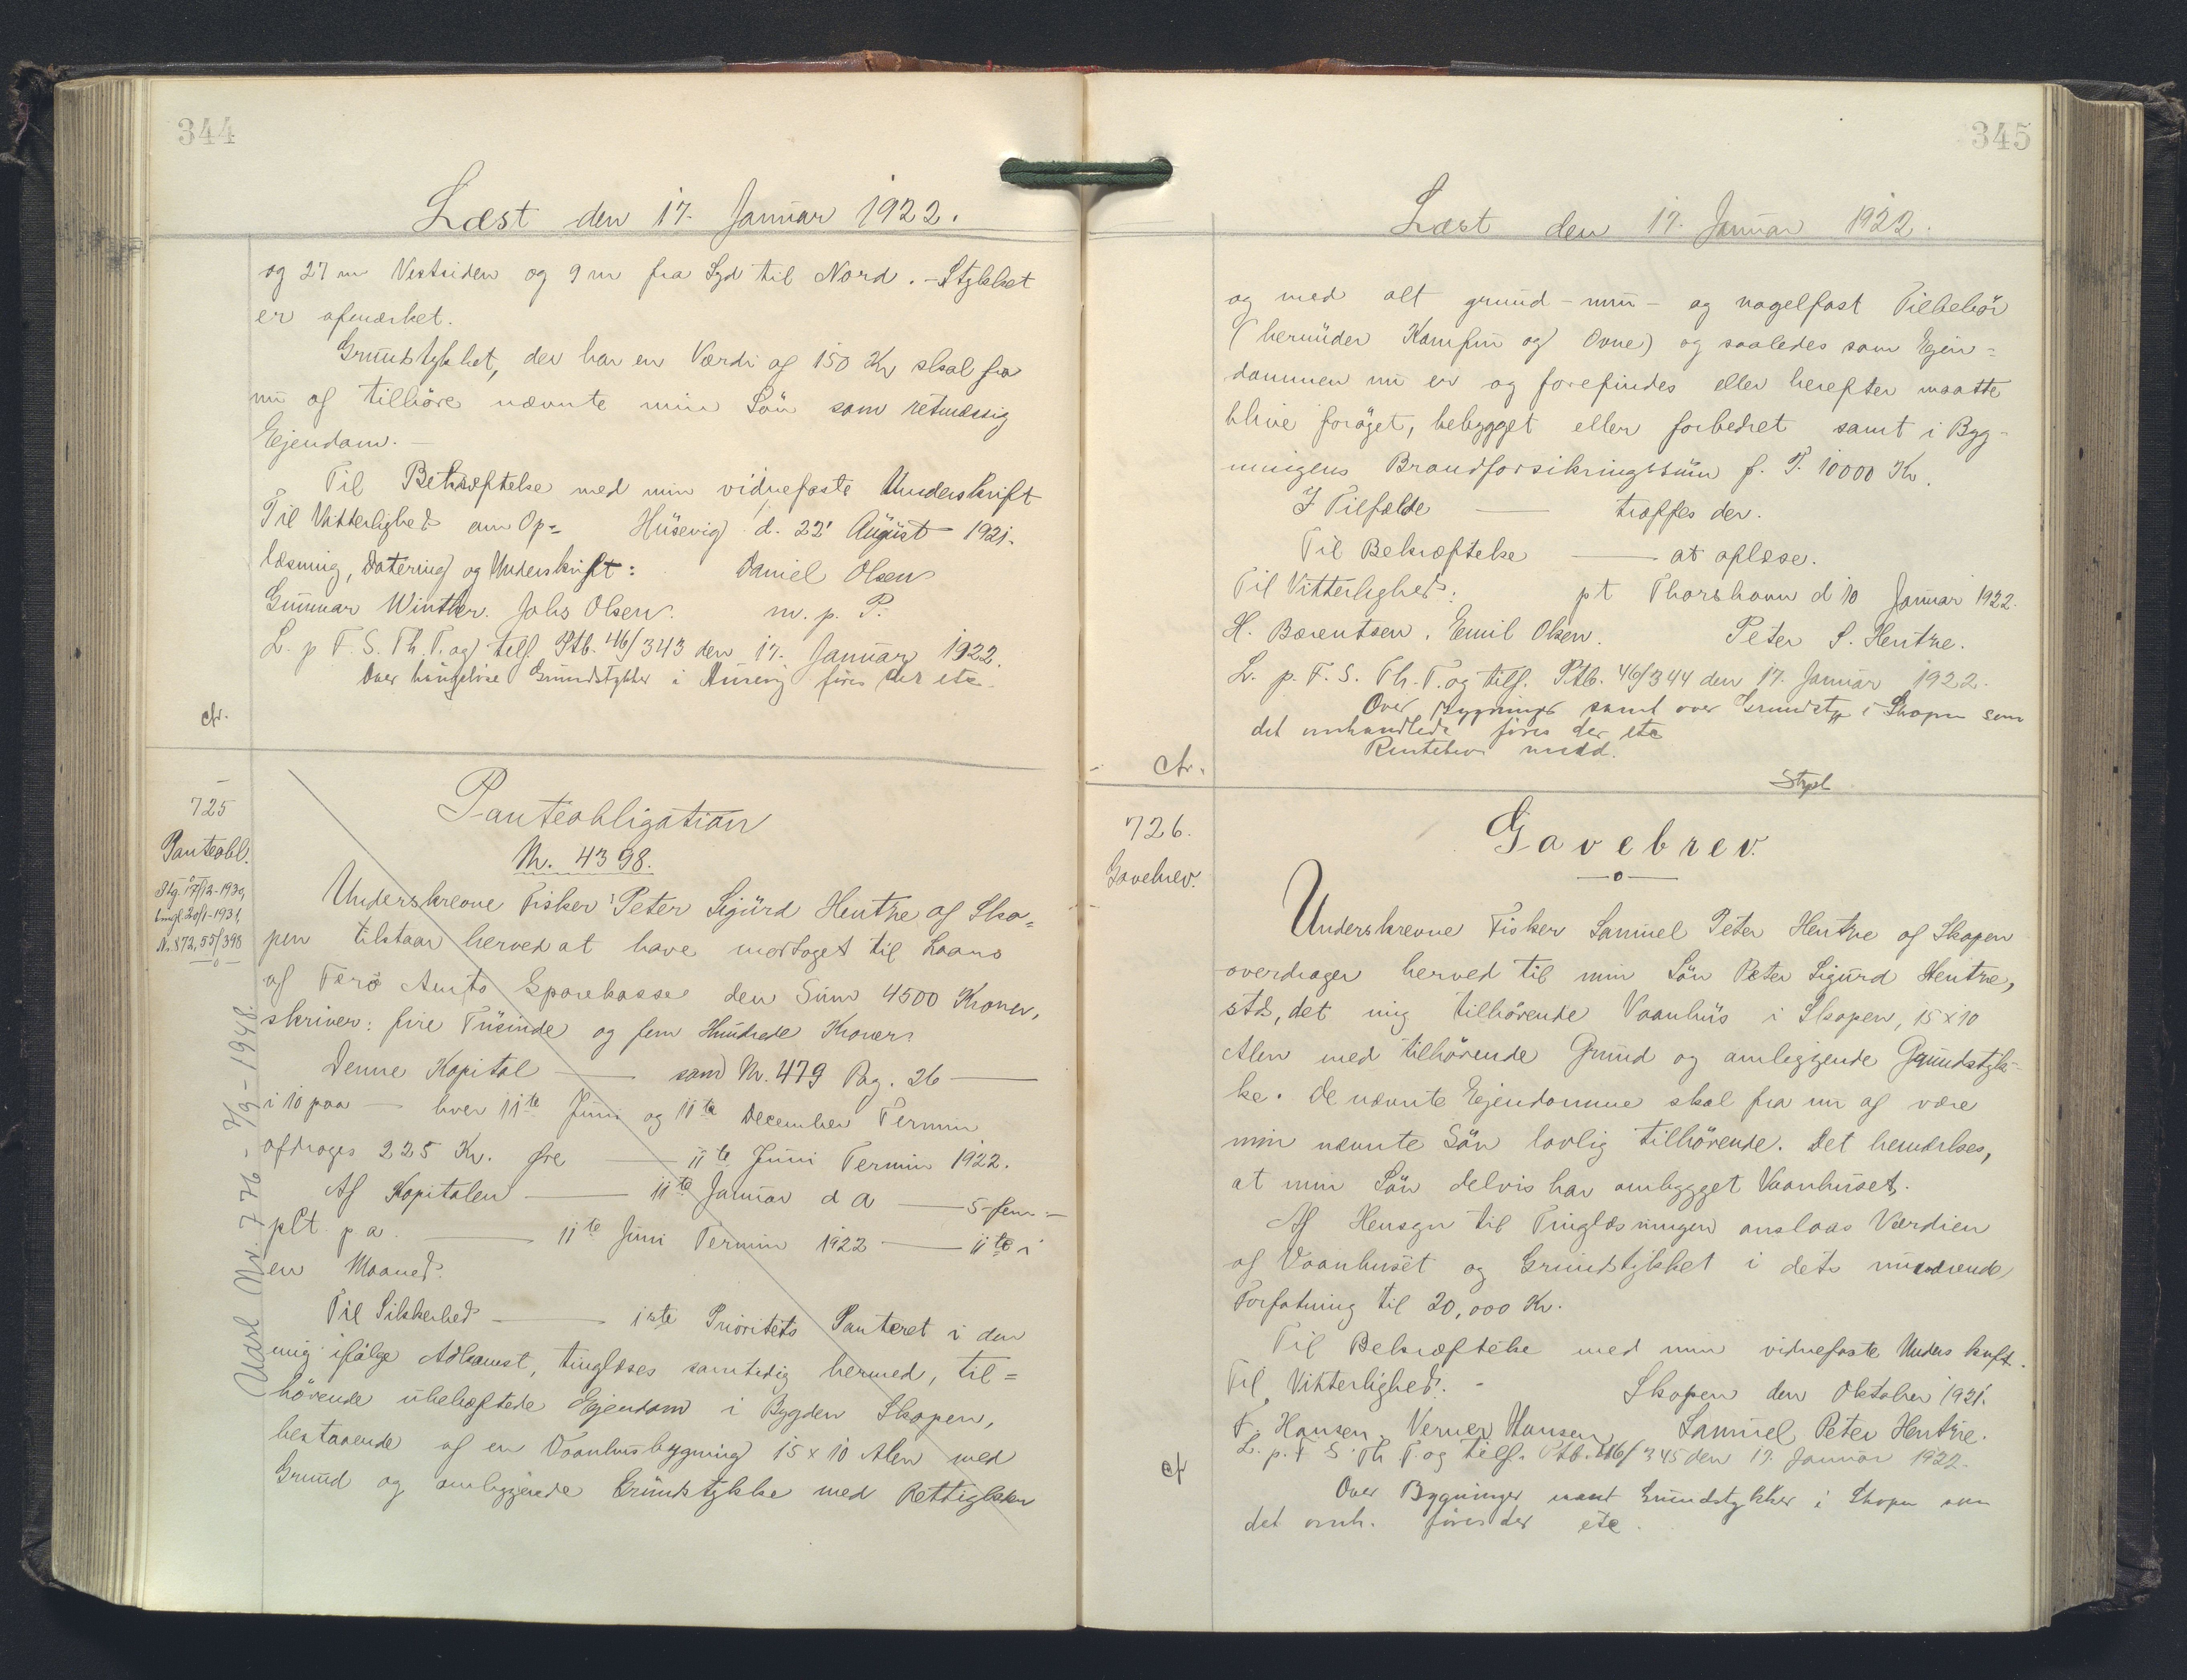 344
Læst den 17. Januar 1922.
og 27 m Vestsiden og 9 m fra Syd til Nord. - Stykket
er afmærket.
Grundstykket, der har en Værdi af 150 Kr skal fra
nu af tilhöre nævnte min Sön som retmæssig
Ejendom. -
Til Bekræftelse med min vidnefaste Underskrift
Til Vitterlighed om Op= Husevig d. 22' August 1921.
læsning, Datering og Underskrift: Daniel Olsen
Gunnar Winther. Johs Olsen. m. p. P.
L. p F. S. Th. T. og tilf. Ptb. 46/343 den 17. Januar 1922.
Over huusløse Grundstykker i Husevig føres der etc.
cfr.
725
Panteobl.
Slg. 17/12-1930,
tingl. 20/1-1931,
N. 872, 55/398
Udsl Nr. 776 - 7/9 - 1948.
Panteobligation
Nr. 4398.
Underskrevne Fisker Peter Sigurd Hentze af Sko=
pen tilstaar herved at have modtaget til Laans
af Færö Amts Sparekasse den Sum 4500 Kroner,
skriver: fire Tusinde og fem Hundrede Kroner.
Denne Kapital — som Nr. 479 Pag. 26 —
i 10 paa — hver 11te Juni og 11te December Termin
afdrages 225 Kr. Øre — 11te Juni Termin 1922.
Af Kapitalen — 11te Januar d A — 5-fem-
pCt p a. — 11te Juni Termin 1922 — 11te i
en Maaned.
Til Sikkerhed — 1ste Prioritets Panteret i den
mig ifölge Adkomst, tinglæses samtidig hermed, til=
hörende ubehæftede Ejendom i Bygden Skopen,
bestaaende af en Vaanhusbygning 15 x 10 Alen med
Grund og omliggende Grundstykke med Rettigheder
345
Læst den 17. Januar 1922.
og med alt grund - mur - og nagelfast Tilbehör
(herunder Komfur og Ovne) og saaledes som Ejen=
dommen nu er og forefindes eller herefter maatte
blive foröget, bebygget eller forbedret samt i Byg-
ningens Brandforsikringssum f. T. 10000 Kr.
I Tilfælde — træffes der.
Til Bekræftelse — at aflæse.
Til Vitterlighed: pt Thorshavn d 10 Januar 1922.
H. Bærentsen. Emil Olsen. Peter S. Hentze.
L. p. F. S. Th. T. og tilf. Ptb. 46/344 den 17. Januar 1922.
Over Bygninger samt over Grundst. i Skopen som
det omhandlede føres der etc
cfr.
726.
Gavebrev.
Gavebrev.
—o—
Underskrevne Fisker Samuel Peter Hentze af Skopen
overdrager herved til min Sön Peter Sigurd Hentze,
stds, det mig tilhörende Vaanhus i Skopen, 15 x 10
Alen med tilhörende Grund og omliggende Grundstyk-
ke. De nævnte Ejendomme skal fra nu af være
min nævnte Sön lovlig tilhörende. Det bemærkes,
at min Sön delvis har ombygget Vaanhuset.
Af Hensyn til Tinglæsningen anslaas Værdien
af Vaanhuset og Grundstykket i dets nuværende
Forfatning til 20,000 Kr.
Til Bekræftelse med min vidnefaste Underskrift.
Til Vitterlighed. - Skopen den Oktober 1921.
F. Hansen. Verner Hansen Samuel Peter Hentze.
L. p. F S. Th T. og tilf. Ptb. 46/345 den 17. Januar 1922.
cfr
Over Bygninger samt Grundstykker i Skopen som
det omh. føres der etc.